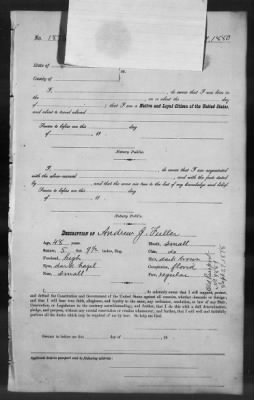 No. 1
1880
State of
County of
ss.
I, do swear that I was born in
the of , on or about the day
of ; that I am a Native and Loyal Citizen of the United States,
and about to travel abroad
Sworn to before me this day
of 18
Notary Public.
I, do swear that I am acquainted
with the above-named , and with the facts stated
by , and that the same are true to the best of my knowledge and belief.
Sworn to before me this day
of 18
Notary Public.
Description of Andrew J. Fuller
Age, 48 years. Mouth, small
Stature, 5 feet, 9½ inches, Eng. Chin, do
Forehead, high Hair, dark brown
Eyes, dark hazel Complexion, florid
Nose, small Face, regular
I, do solemnly swear that I will support, protect,
and defend the Constitution and Government of the United States against all enemies, whether domestic or foreign;
and that I will bear true faith, allegiance, and loyalty to the same, any ordinance, resolution, or law of any State,
Convention, or Legislature to the contrary notwithstanding; and further, that I do this with a full determination,
pledge, and purpose, without any mental reservation or evasion whatsoever; and further, that I will well and faithfully
perform all the duties which may be required of me by law: So help me God.
Sworn to before me this day of , 18
Applicant desires passport to be sent to following address: